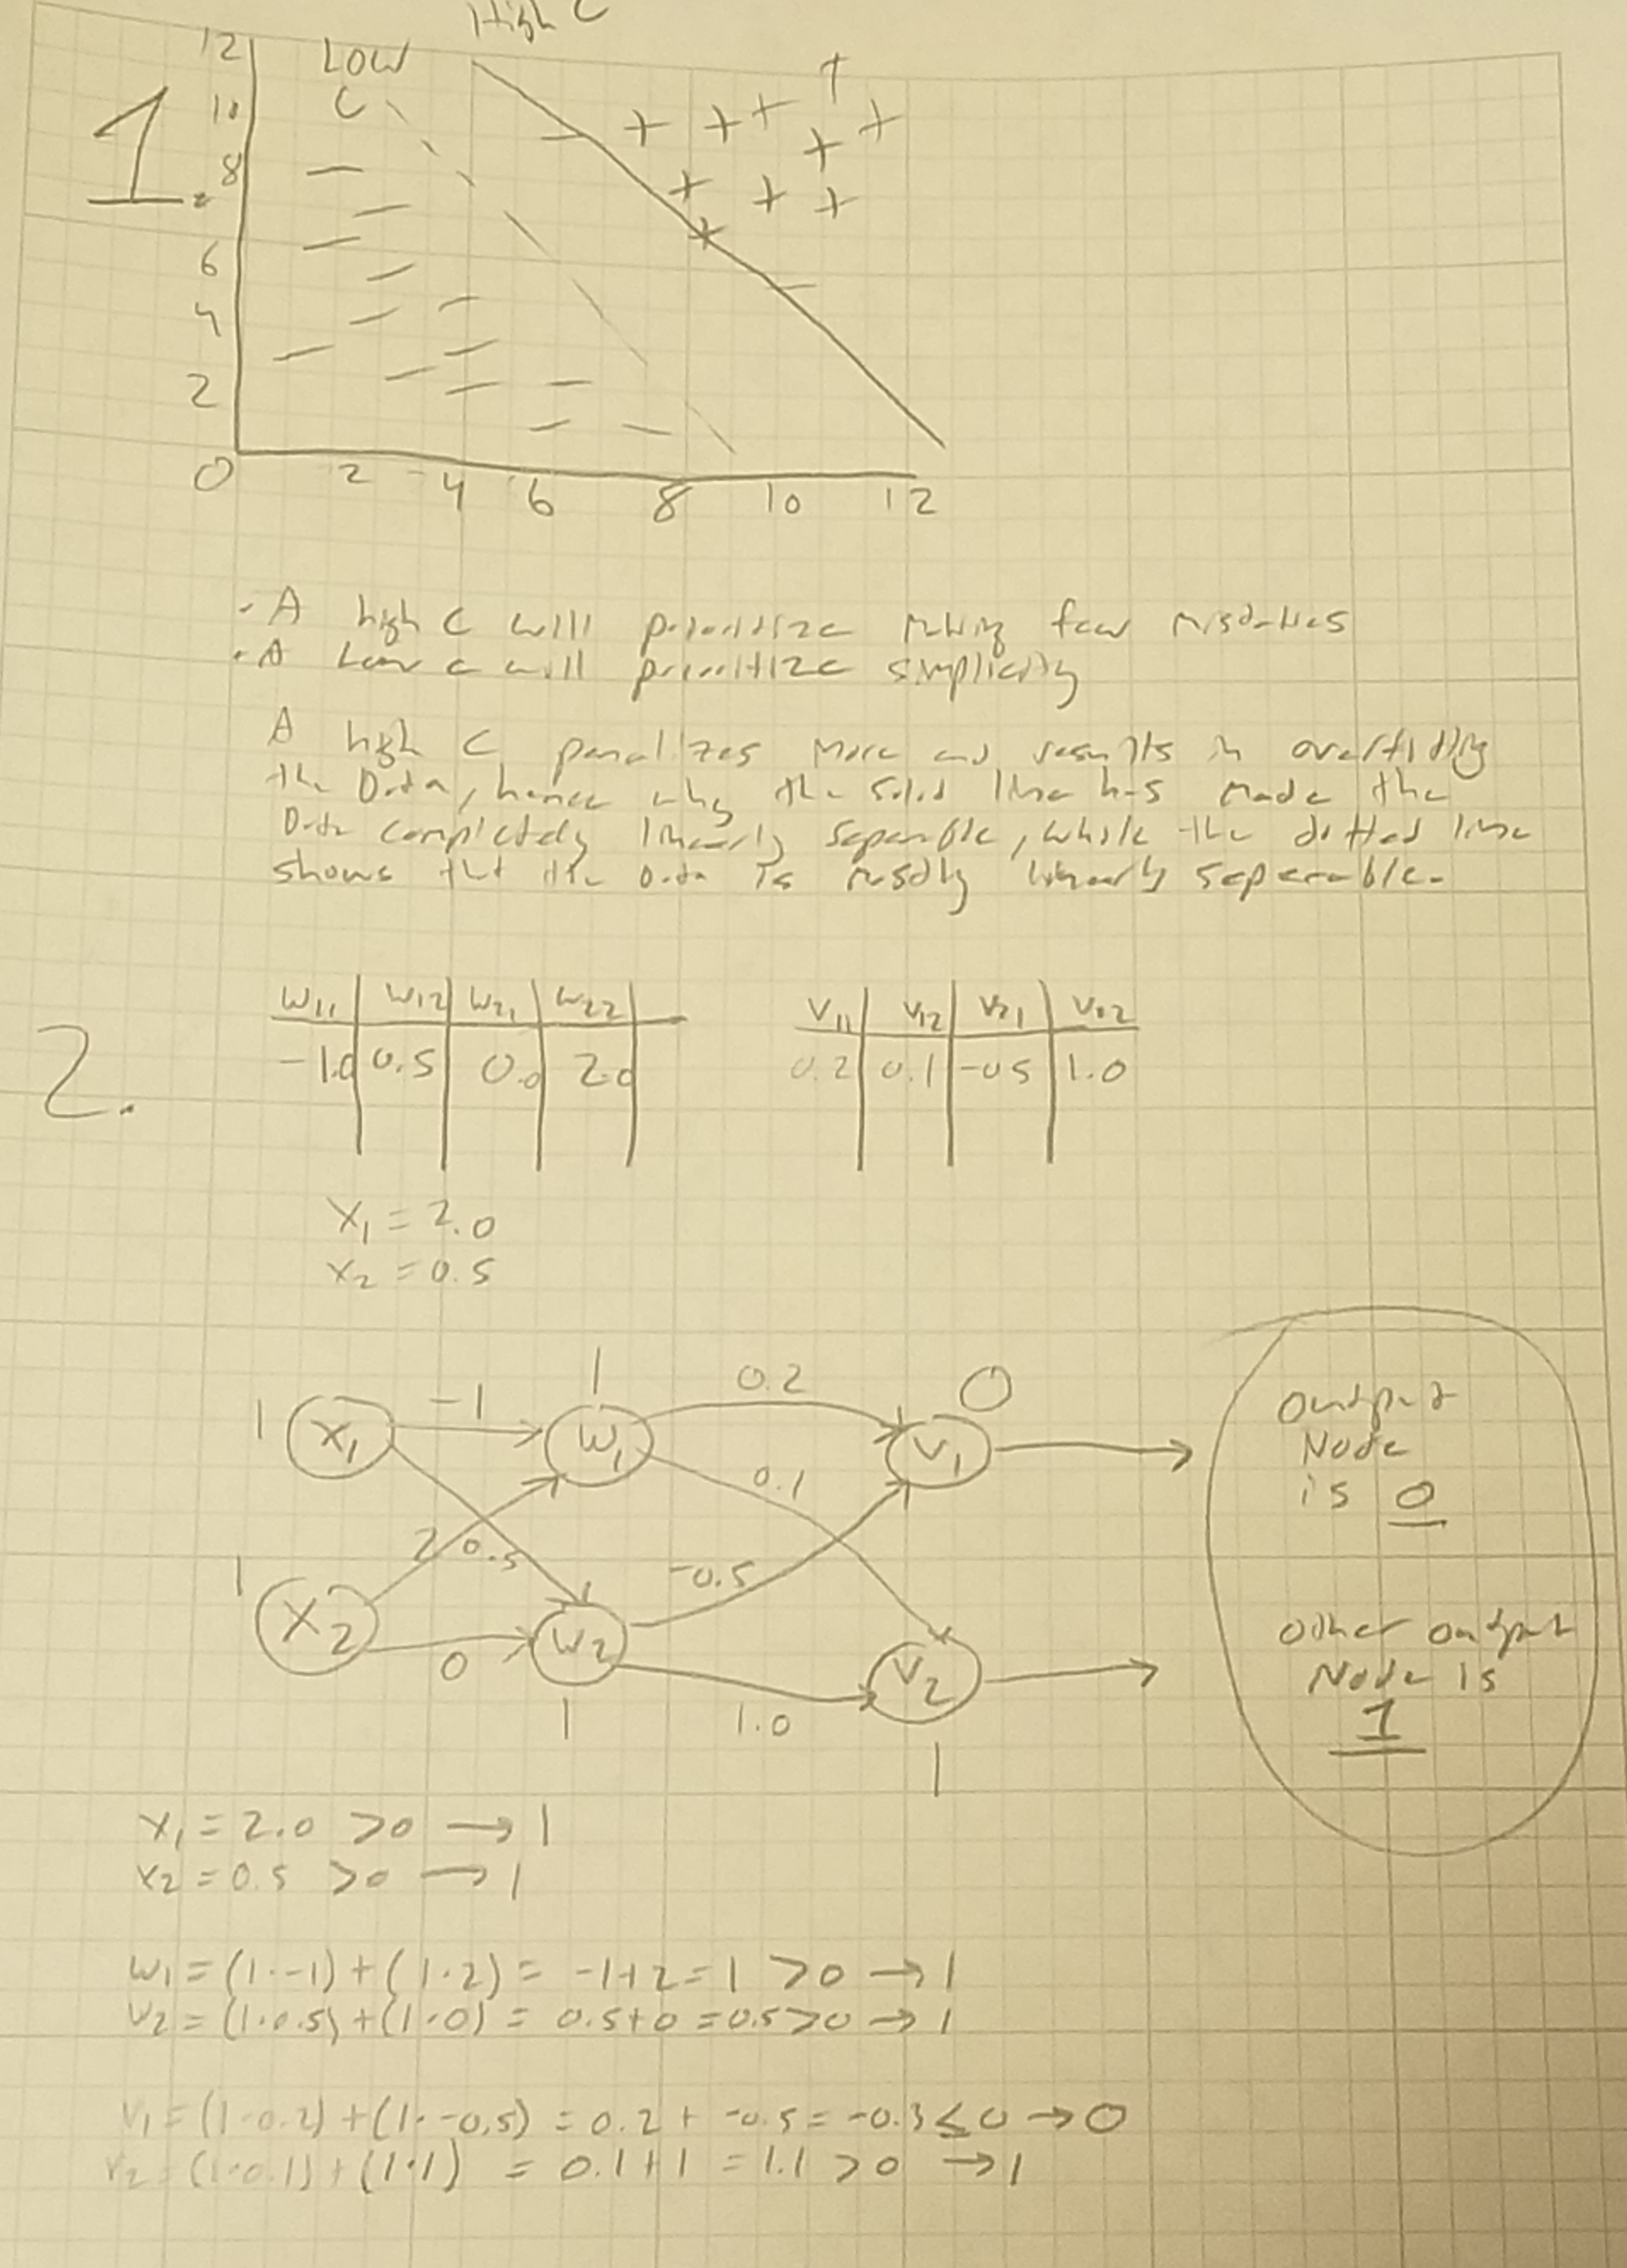 High C
12
LOW
C
10
1.
8
6
4
2
0 2 4 6 8 10 12
- A high C will prioritize making few mistakes
- A Low c will prioritize simplicity
A high C penalizes more and results in overfitting
the Data, hence why the solid line has made the
Data completely linearly separable, while the dotted line
shows that the Data is mostly linearly seperable.
2.
w11 w12 w21 w22
-1.0 0.5 0.0 2.0
v11 v12 v21 v22
0.2 0.1 -0.5 1.0
x1 = 2.0
x2 = 0.5
1 x1 -1 1 w1 0.2 0 v1
0.1
2 0.5
-0.5
1 x2 0 w2 1 1.0 v2 1
Output
Node
is 0
Other output
Node is
1
x1 = 2.0 >0 → 1
x2 = 0.5 >0 → 1
w1 = (1·-1)+(1·2) = -1+2=1 >0 → 1
w2 = (1·0.5)+(1·0) = 0.5+0=0.5>0 → 1
v1 = (1·0.2)+(1·-0.5) = 0.2+ -0.5= -0.3≤0 → 0
v2 = (1·0.1)+(1·1) = 0.1+1 =1.1 >0 → 1